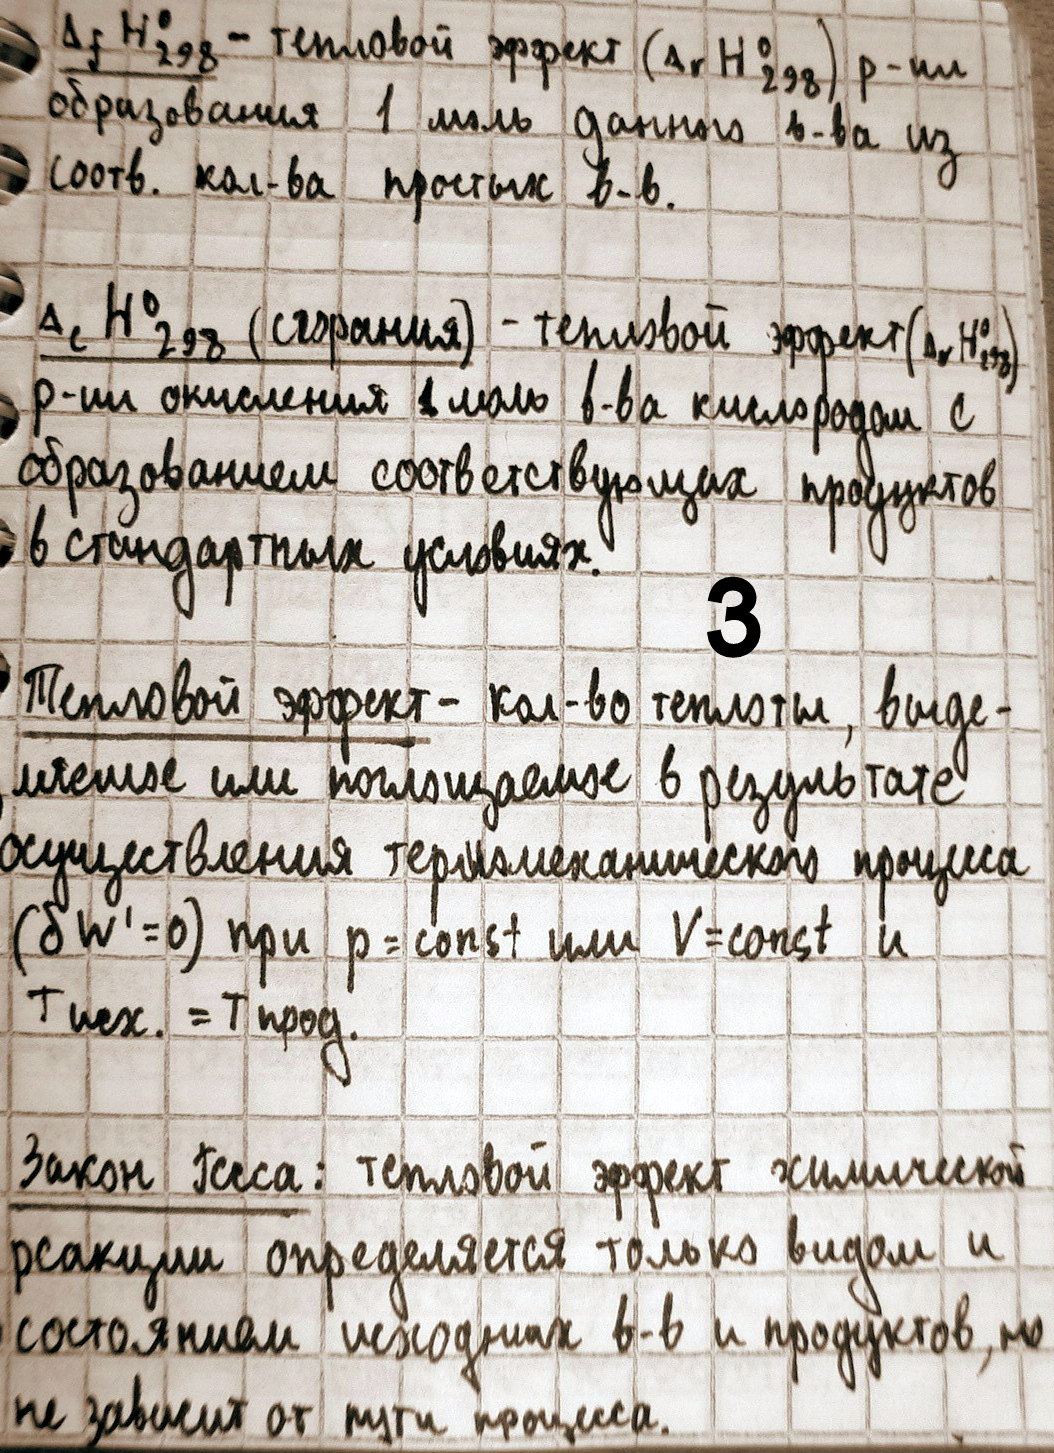 Δf H⁰₂₉₈ – тепловой эффект (Δr H⁰₂₉₈) р-ии
образования 1 моль данного в-ва из
соотв. кол-ва простых в-в.
Δc H⁰₂₉₈ (сгорания) – тепловой эффект (Δr H⁰₂₉₈)
р-ии окисления 1 моль в-ва кислородом с
образованием соответствующих продуктов
в стандартных условиях.
3
Тепловой эффект – кол-во теплоты, выде-
ляемое или поглощаемое в результате
осуществления термомеханического процесса
(δW'=0) при p=const или V=const и
Tисх. = Tпрод.
Закон Гесса: тепловой эффект химической
реакции определяется только видом и
состоянием исходных в-в и продуктов, но
не зависит от пути процесса.